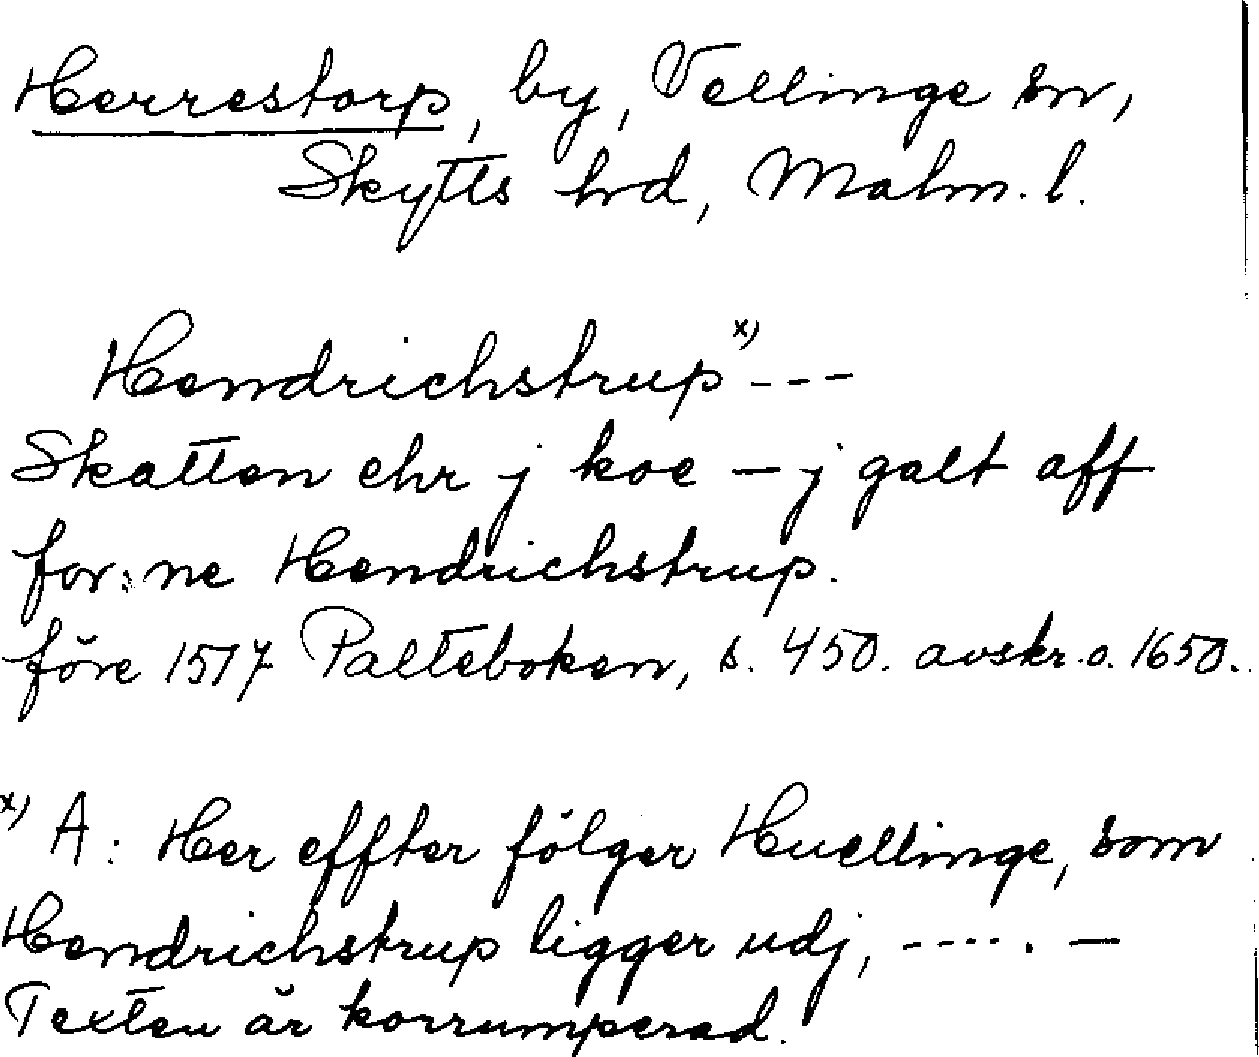 Herrestorp, by, Vellinge sn,
Skytts hd, Malm. l.
Hendrichstrup x) - - -
Skatten ehr j koe – j galt aff
for:ne Hendrichstrup.
före 1517 Palteboken, s. 450. avskr. o. 1650.
x) A: Her effter fölger Huellinge, som
Hendrichstrup ligger udj, - - - - . —
Texten är korrumperad.